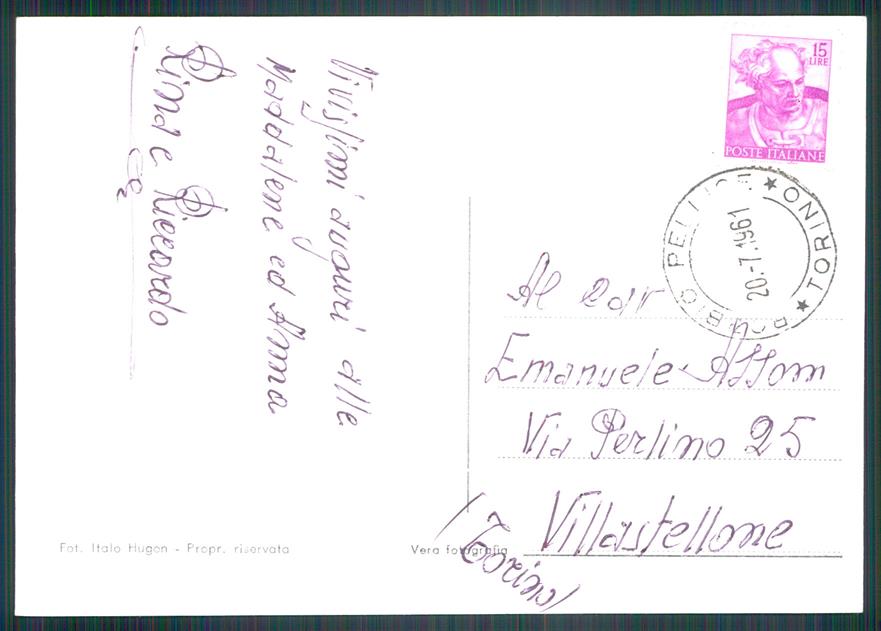 Vivissimi auguri alle
Maddalene ed Anna
Rina e Riccardo
15
LIRE
POSTE ITALIANE
BOBBIO PELLICE ★ TORINO ★
20-7.1961
Al
Emanuele Assom
Via Perlino 25
Villastellone
(Torino)
Fot. Italo Hugon - Propr. riservata
Vera fotografia